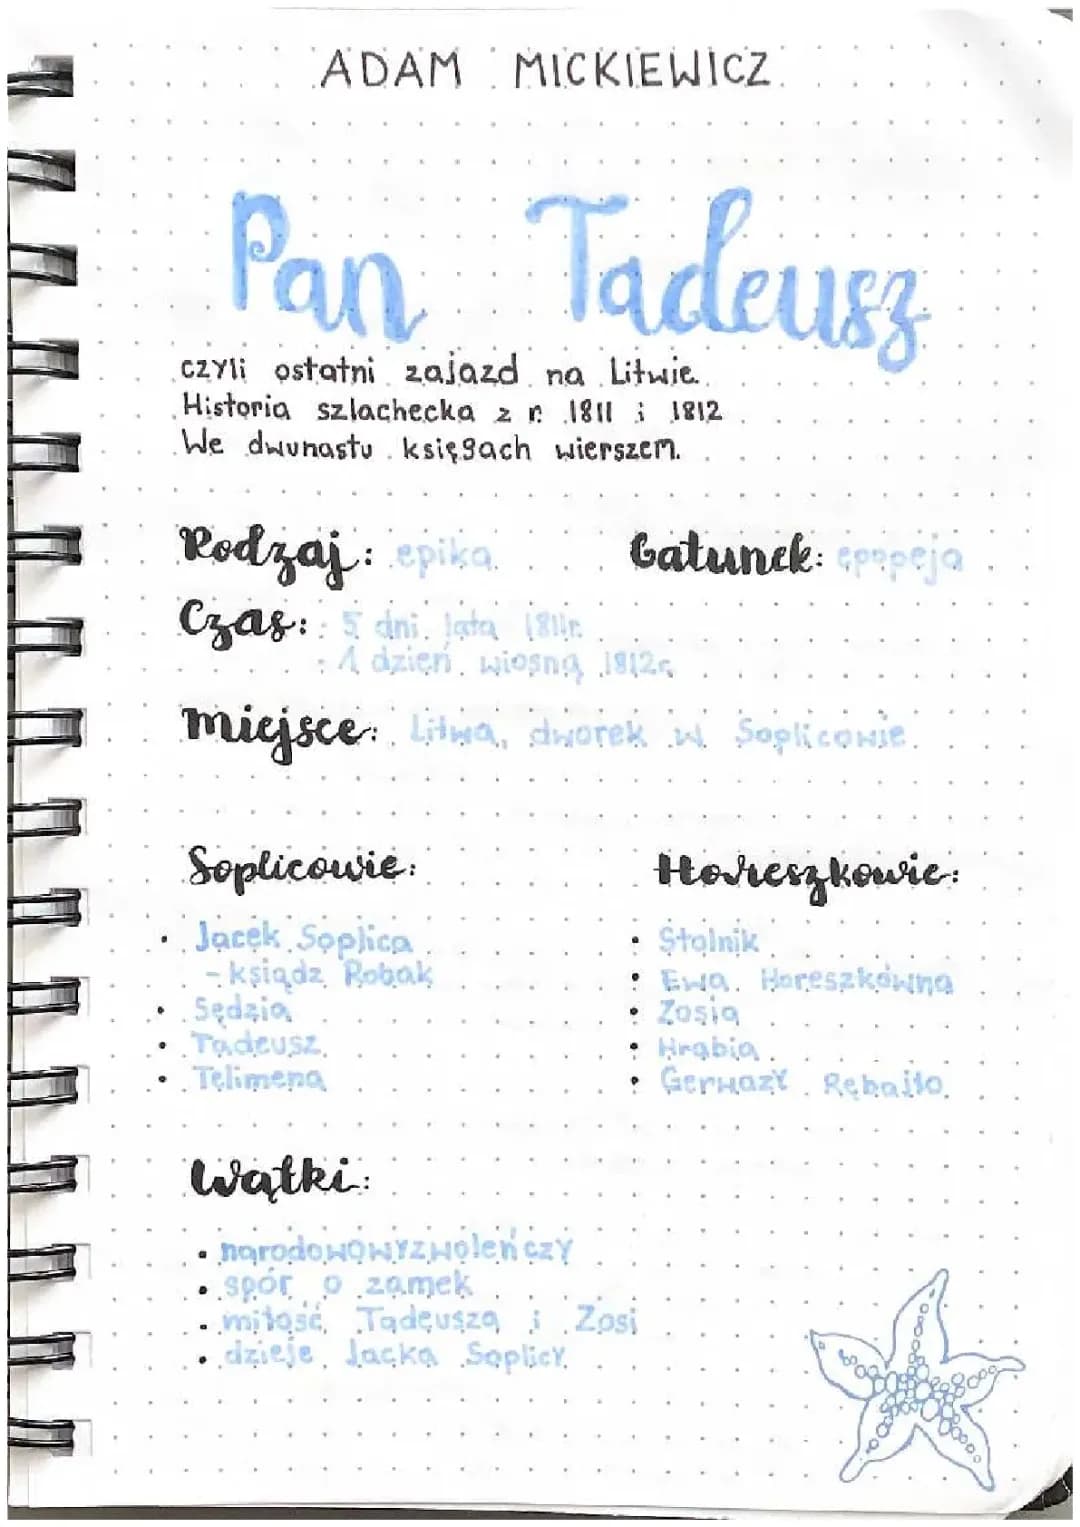 ADAM MICKIEWICZ
Pan Tadeusz
czyli ostatni zajazd na Litwie.
Historia szlachecka z r. 1811 i 1812
We dwunastu księgach wierszem.
Rodzaj: epika
Gatunek: epopeja
Czas: 5 dni lata 1811r.
1 dzień wiosną 1812r.
Miejsce: Litwa, dworek w Soplicowie
Soplicowie:
• Jacek Soplica
- ksiądz Robak
• Sędzia
• Tadeusz
• Telimena
Horeszkowie:
• Stolnik
• Ewa Horeszkówna
• Zosia
• Hrabia
• Gerwazy Rębajło
Wątki:
• narodowowyzwoleńczy
• spór o zamek
• miłość Tadeusza i Zosi
• dzieje Jacka Soplicy